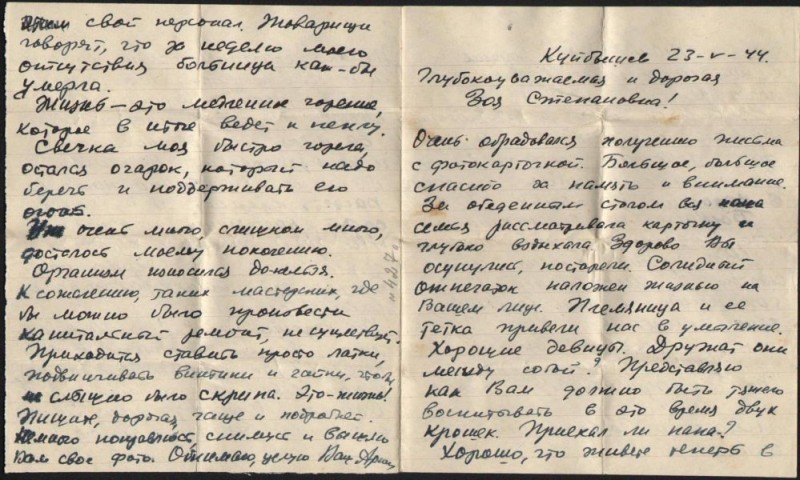 свой персонал. Товарищи
говорят, что за неделю моего
отсутствия больница как-бы
умерла.
Жизнь – это медленное горение,
которое в итоге ведет к пеплу.
Свечка моя быстро горела,
остался огарок, который надо
беречь и поддерживать его
огонь.
очень много, слишком много,
досталось моему поколению.
Организм износился донельзя.
К сожалению, таких мастерских, где
бы можно было произвести
капитальный ремонт, не существует.
Приходится ставить просто латки,
подвинчивать винтики и гайки, чтобы
не слышно было скрипа. Это – жизнь!
Пишите, дорогая, чаще и подробнее.
Немного поправлюсь, снимусь и вышлю
Вам свое фото. Обнимаю, целую Вас
"427"
Куйбышев 23-V-44.
Глубокоуважаемая и дорогая
Зоя Степановна!
Очень обрадовался получению письма
с фотокарточкой. Большое, большое
спасибо за память и внимание.
За обеденным столом вся наша
семья рассматривала карточку и
глубоко вздыхала. Здорово Вы
осунулись, постарели. Солидный
отпечаток наложен жизнью на
Вашем лице. Племянница и ее
тетка привели нас в умиление.
Хорошие девицы. Дружат они
между собой? Представляю
как Вам должно быть тяжело
воспитывать в это время двух
крошек. Приехал ли папа?
Хорошо, что живете теперь в